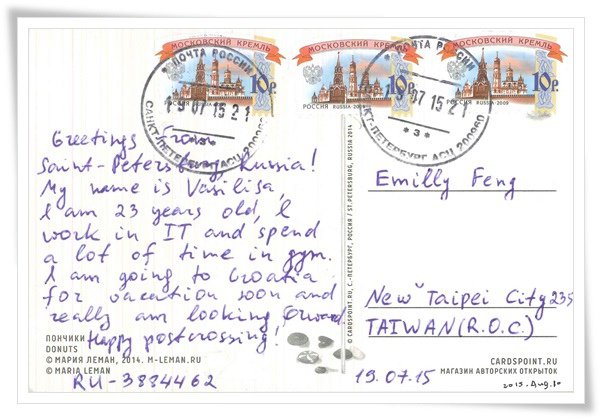 МОСКОВСКИЙ КРЕМЛЬ
МОСКОВСКИЙ КРЕМЛЬ
МОСКОВСКИЙ КРЕМЛЬ
10Р.
10Р.
10Р.
РОССИЯ RUSSIA·2009
РОССИЯ RUSSIA·2009
РОССИЯ RUSSIA·2009
ПОЧТА РОССИИ
07 15 21
САНКТ-ПЕТЕРБУРГ АСЦ 200960
ПОЧТА РОССИИ
07 15 21
* 3 *
САНКТ-ПЕТЕРБУРГ АСЦ 200960
Greetings from
Saint-Petersburg, Russia!
My name is Vasilisa,
I am 23 years old, I
work in IT and spend
a lot of time in gym.
I am going to Croatia
for vacation soon and
really am looking forward.
Happy postcrossing!
ПОНЧИКИ
DONUTS
© МАРИЯ ЛЕМАН, 2014. M-LEMAN.RU
© MARIA LEMAN
RU-3884462
© CARDSPOINT.RU, С.-ПЕТЕРБУРГ, РОССИЯ / ST.PETERSBURG, RUSSIA 2014
Emilly Feng
New Taipei City 235
TAIWAN (R.O.C.)
19.07.15
CARDSPOINT.RU
МАГАЗИН АВТОРСКИХ ОТКРЫТОК
2015. Aug. 10